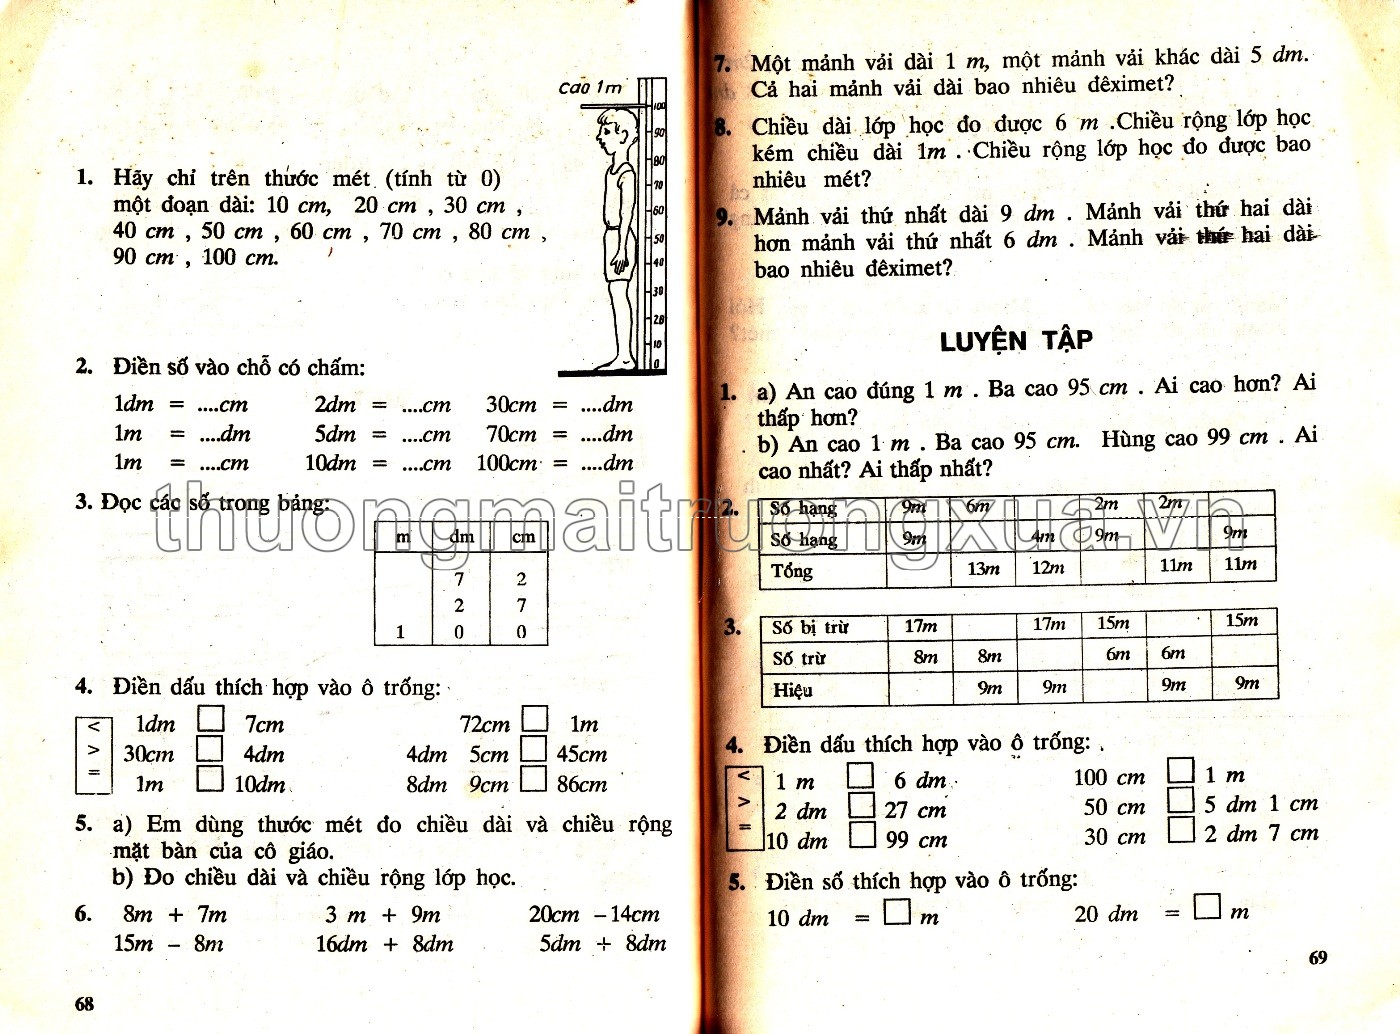 cao 1m
100
90
80
70
60
50
40
30
20
10
0
1. Hãy chỉ trên thước mét (tính từ 0)
một đoạn dài: 10 cm, 20 cm , 30 cm ,
40 cm , 50 cm , 60 cm , 70 cm , 80 cm ,
90 cm , 100 cm.
2. Điền số vào chỗ có chấm:
1dm = ....cm 2dm = ....cm 30cm = ....dm
1m = ....dm 5dm = ....cm 70cm = ....dm
1m = ....cm 10dm = ....cm 100cm = ....dm
3. Đọc các số trong bảng:
m dm cm
7 2
2 7
1 0 0
4. Điền dấu thích hợp vào ô trống:
< 1dm □ 7cm 72cm □ 1m
> 30cm □ 4dm 4dm 5cm □ 45cm
= 1m □ 10dm 8dm 9cm □ 86cm
5. a) Em dùng thước mét đo chiều dài và chiều rộng
mặt bàn của cô giáo.
b) Đo chiều dài và chiều rộng lớp học.
6. 8m + 7m 3 m + 9m 20cm - 14cm
15m - 8m 16dm + 8dm 5dm + 8dm
68
7. Một mảnh vải dài 1 m, một mảnh vải khác dài 5 dm.
Cả hai mảnh vải dài bao nhiêu đêximet?
8. Chiều dài lớp học đo được 6 m .Chiều rộng lớp học
kém chiều dài 1m . Chiều rộng lớp học đo được bao
nhiêu mét?
9. Mảnh vải thứ nhất dài 9 dm . Mảnh vải thứ hai dài
hơn mảnh vải thứ nhất 6 dm . Mảnh vải thứ hai dài
bao nhiêu đêximet?
LUYỆN TẬP
1. a) An cao đúng 1 m . Ba cao 95 cm . Ai cao hơn? Ai
thấp hơn?
b) An cao 1 m . Ba cao 95 cm. Hùng cao 99 cm . Ai
cao nhất? Ai thấp nhất?
2. Số hạng 9m 6m 2m 2m
Số hạng 9m 4m 9m 9m
Tổng 13m 12m 11m 11m
3. Số bị trừ 17m 17m 15m 15m
Số trừ 8m 8m 6m 6m
Hiệu 9m 9m 9m 9m
4. Điền dấu thích hợp vào ô trống:
< 1 m □ 6 dm 100 cm □ 1 m
> 2 dm □ 27 cm 50 cm □ 5 dm 1 cm
= 10 dm □ 99 cm 30 cm □ 2 dm 7 cm
5. Điền số thích hợp vào ô trống:
10 dm = □ m 20 dm = □ m
69
thuongmaitruongxua.vn